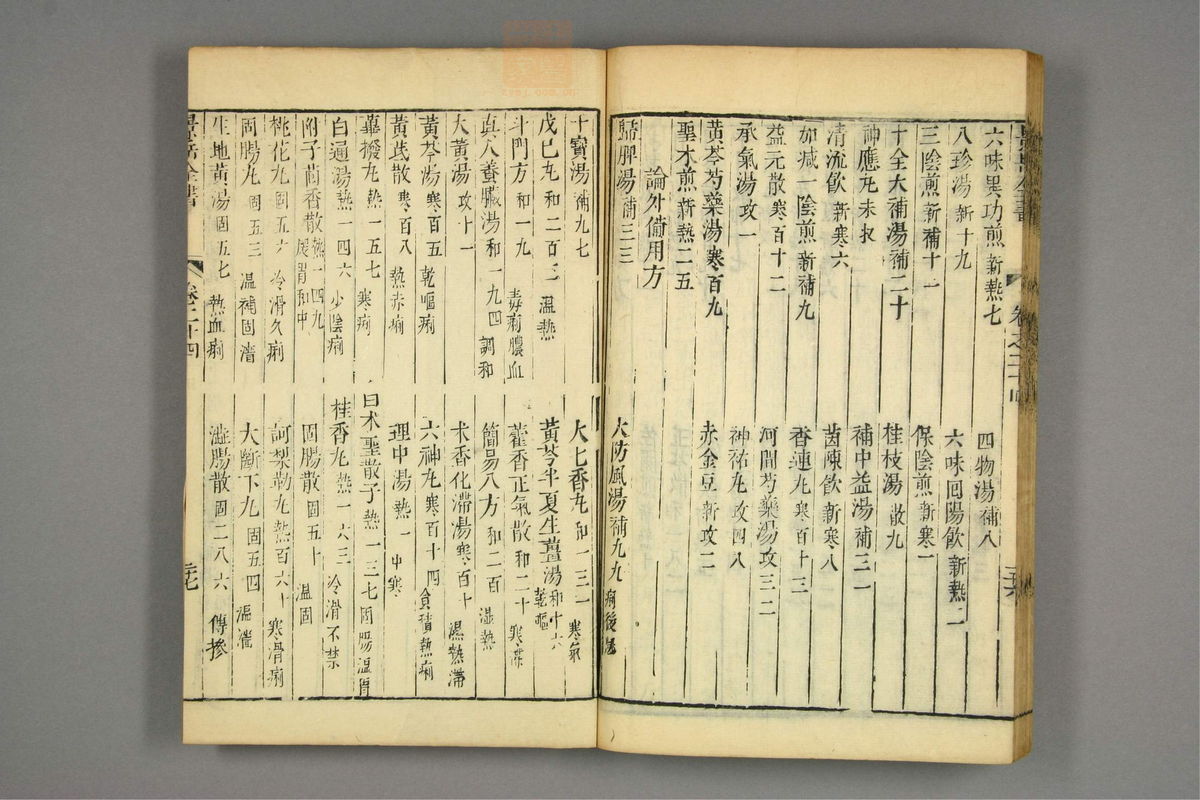 六味異功煎新熱七　四物湯補八
八珍湯補十九　六味囘陽飲新熱二
三陰煎新補十一　保陰煎新寒一
十全大補湯補二十　桂枝湯散九
神應丸未収　補中益湯補三一
清流飲新寒六　茵陳飲新寒八
加減一陰煎新補九　香連丸寒百十三
益元散寒百十二　河間芍藥湯攻三二
承氣湯攻一　神祐丸攻四八
黄芩芍藥湯寒百九　赤金豆新攻二
聖术煎新熱二五
論外備用方
歸脾湯補三二　大防風湯補九九痢後風
十寳湯補九七　大七香丸和一三一寒氣
戊巳丸和二百三温熱　黄芩半夏生薑湯和十六乾嘔
斗門方和一九毒痢膿血　藿香正氣散和二十寒滯
真人養臟湯和一九四調和　簡易八方和二百濕熱
大黄湯攻十一　木香化滯湯寒百十濕熱滯
黄芩湯寒百五乾嘔痢　六神丸寒百十四食積熱痢
黄芪散寒百八熱赤痢　理中湯熱一中寒
驀撥丸熱一五七寒痢　白术聖散子熱一三七固腸温胃
白通湯熱一四六少陰痢　桂香丸熱一六三冷滑不禁
附子茴香散熱一四九煖胃和中　固腸散固五十温固
桃花丸固五六冷滑久痢　訶梨勒丸熱百六十寒滑痢
固腸丸固五三温補固濇　大斷下丸固五四温濇
生地黄湯固五七熱血痢　澁腸散固二八六傳摻
景岳全書　卷之二十四　三七